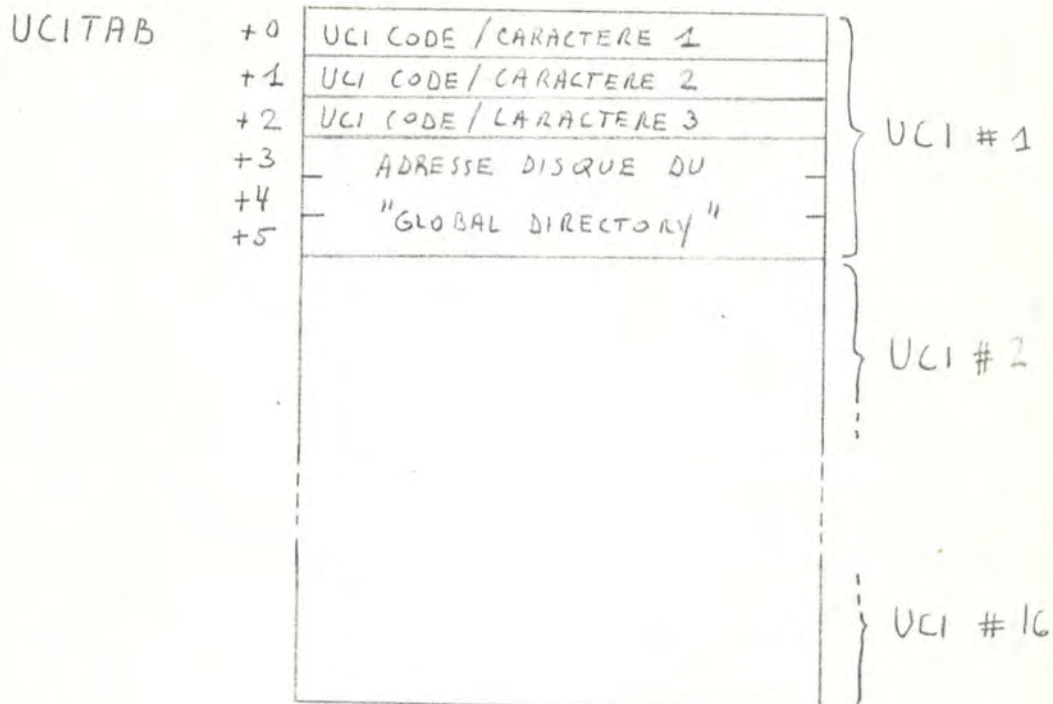 UCITAB +0 UCI CODE / CARACTERE 1
+1 UCI CODE / CARACTERE 2
+2 UCI CODE / CARACTERE 3
UCI # 1
+3 ADRESSE DISQUE DU
+4 "GLOBAL DIRECTORY"
+5
UCI # 2
UCI # 16